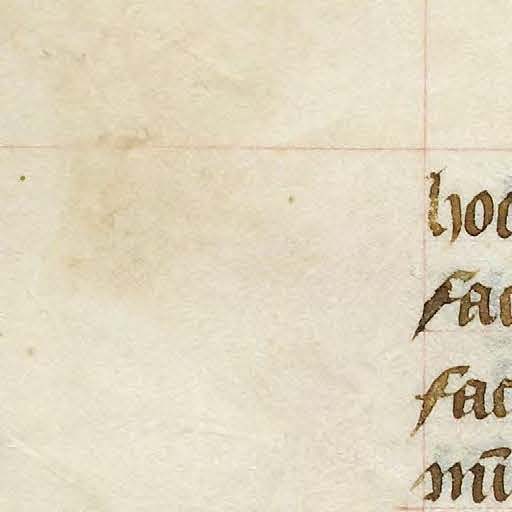 hoc
fac
fac
mū